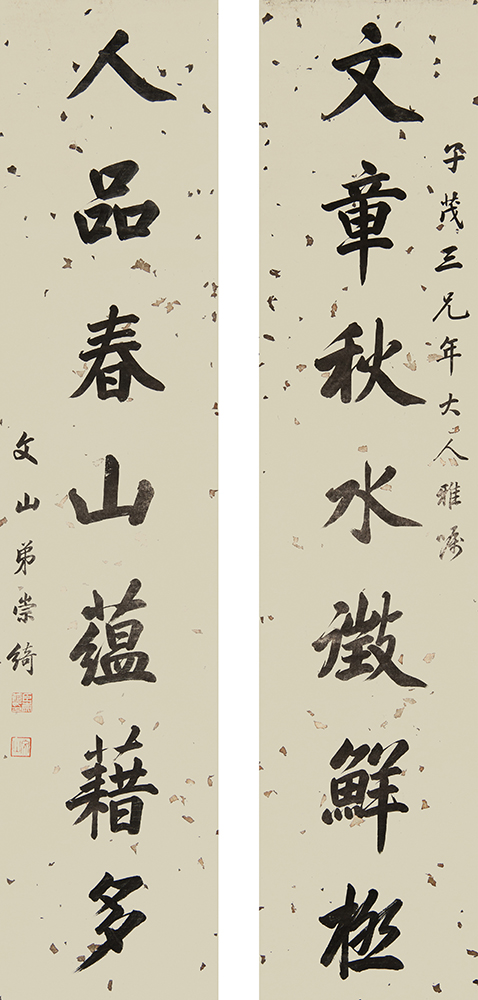 子茂三兄年大人雅嘱
文章秋水澂鮮極
人品春山蘊藉多
文山弟崇綺